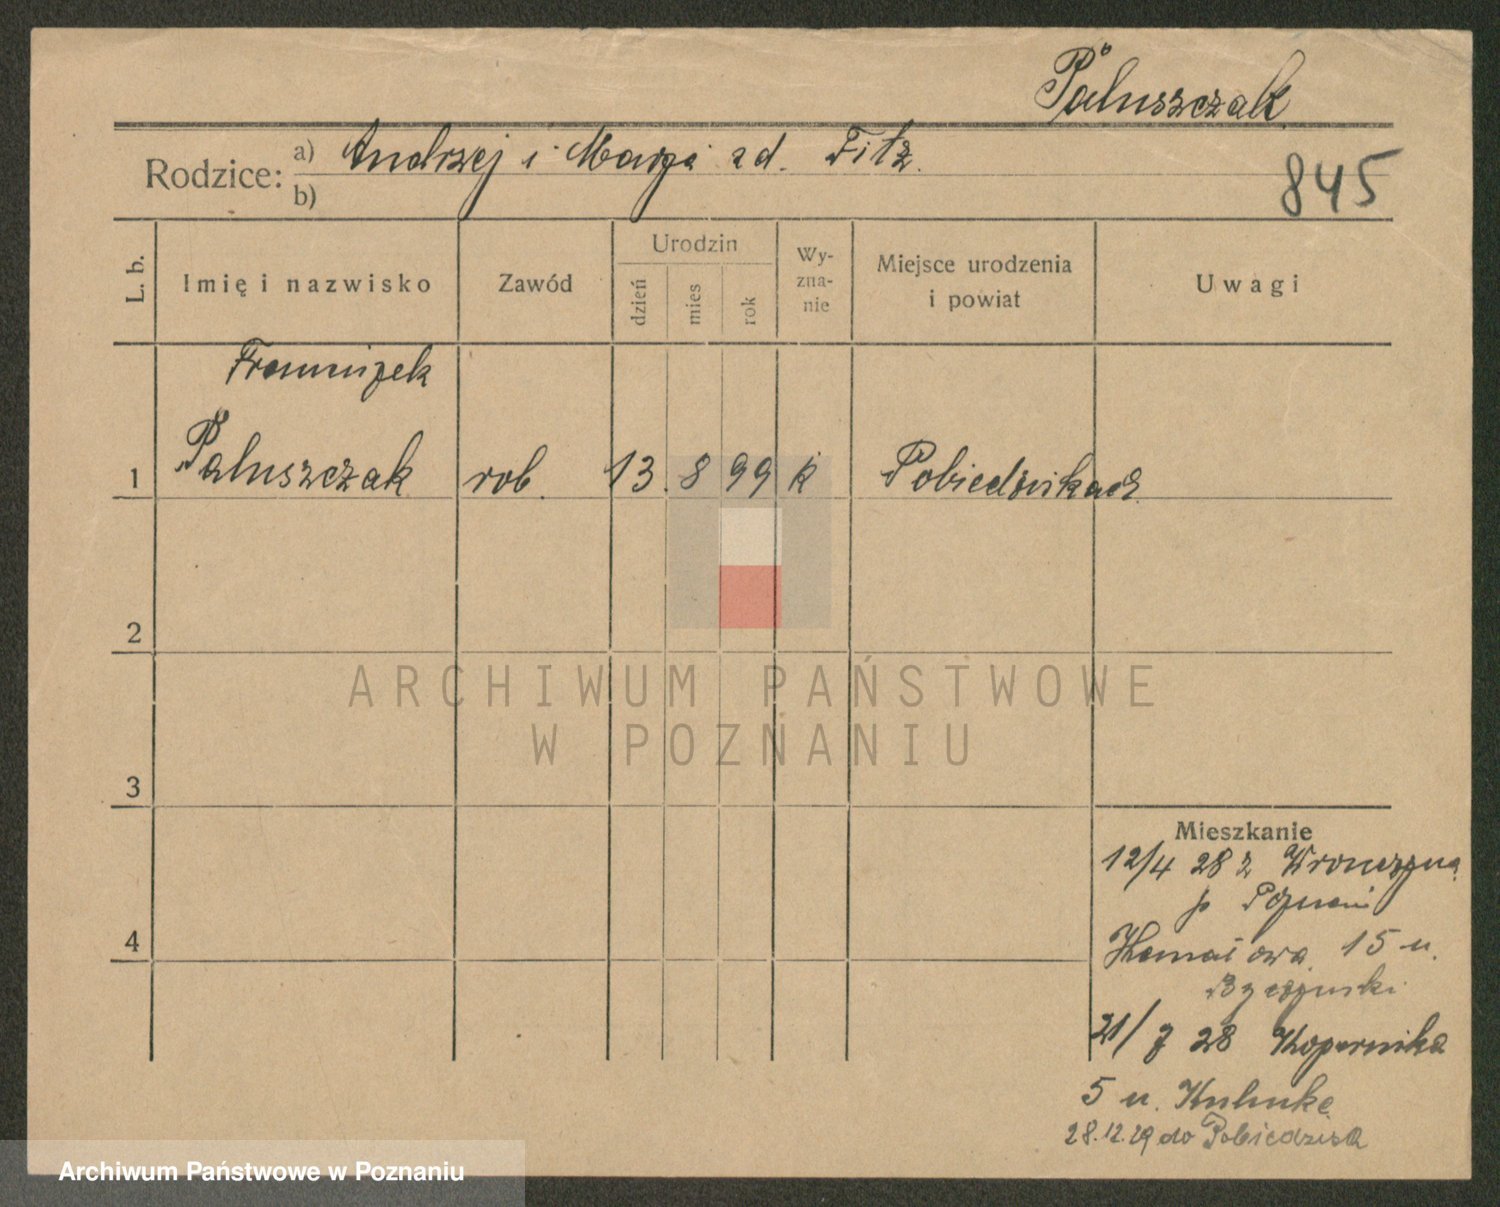 Paluszczak
Rodzice: a) Andrzej i Marja zd. Fitz.
b)
845
L. b.
Imię i nazwisko
Zawód
Urodzin
dzień
mies
rok
Wy-
zna-
nie
Miejsce urodzenia
i powiat
Uwagi
Franciszek
1 Paluszczak rob. 13. 8 99 k Pobiedziskach
2
3
4
ARCHIWUM PAŃSTWOWE
W POZNANIU
Mieszkanie
12/4 28 z
p Poznań
15 u.
21/7 28 Kopernika
5 u. Kuhnke
28.12.29 do Pobiedziska
Archiwum Państwowe w Poznaniu